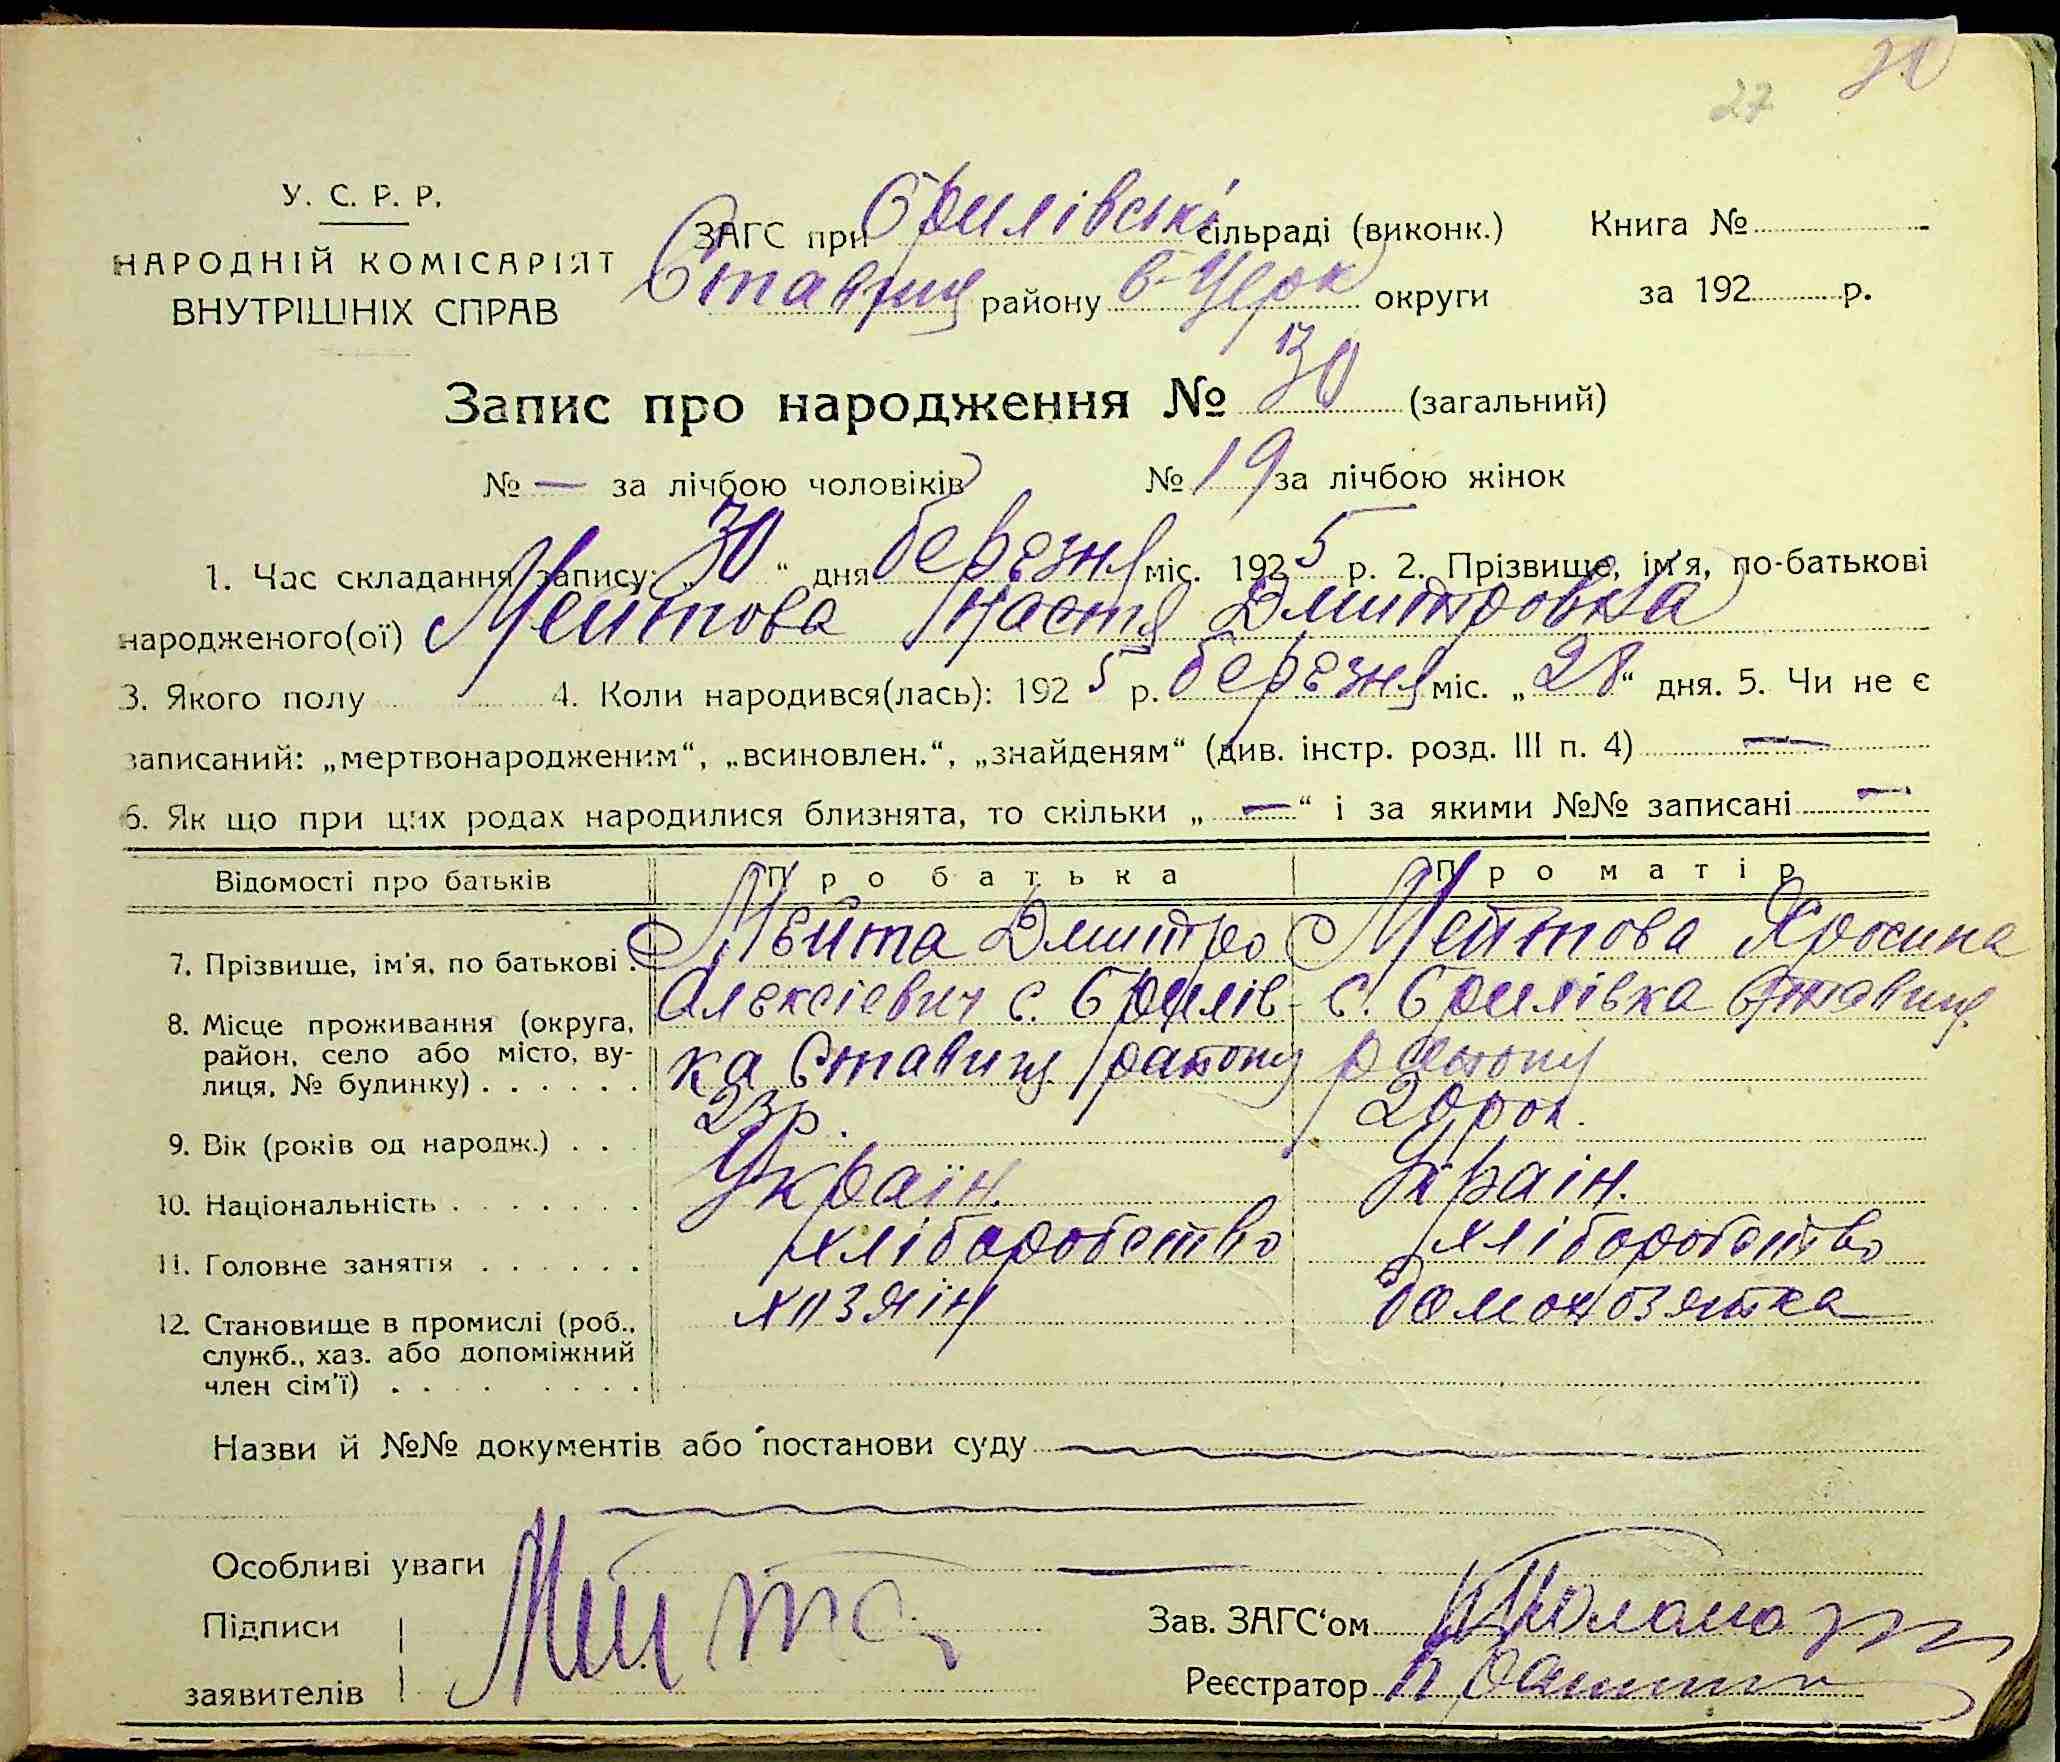 30
27
У. С. Р. Р.
НАРОДНІЙ КОМІСАРІЯТ
ВНУТРІШНІХ СПРАВ
ЗАГС при Брилівські сільраді (виконк.) Книга №
Ставищ району Б-Церк округи за 192 р.
Запис про народження № 30 (загальний)
№ — за лічбою чоловіків № 19 за лічбою жінок
1. Час складання запису: „30“ дня березня міс. 1925 р. 2. Прізвище, ім'я, по-батькові
народженого(ої) Мейтова Настя Дмитровна
3. Якого полу 4. Коли народився(лась): 1925 р. березня міс. „28“ дня. 5. Чи не є
записаний: „мертвонародженим“, „всиновлен.“, „знайденям“ (див. інстр. розд. III п. 4) —
6. Як що при цих родах народилися близнята, то скільки „—“ і за якими №№ записані —
Відомості про батьків Про батька Про матір
7. Прізвище, ім'я, по батькові . Мейта Дмитро Мейтова Яросина
8. Місце проживання (округа, Алексієвич с. Брилів- с. Брилівка Ставищ.
район, село або місто, ву-
лиця, № будинку) . . . . . . ка Ставищ району району
9. Вік (років од народж.) . . 23 р. 20 рок.
10. Національність . . . . . . . Україн. Україн.
11. Головне заняття . . . . . . хліборобство хліборобство
12. Становище в промислі (роб., хозяїн домохозяйка
служб., хаз. або допоміжний
член сім'ї) . . . . . . . .
Назви й №№ документів або постанови суду
Особливі уваги —
Підписи Мейта Зав. ЗАГС'ом
заявителів Реєстратор